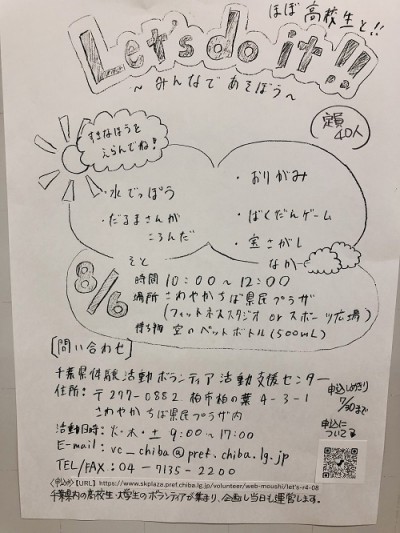 ほぼ高校生と!!
Let's do it!!
～みんなであそぼう～
定員
40人
すきなほうを
えらんでね!
・水でっぽう
・だるまさんが
ころんだ
そと
・おりがみ
・ばくだんゲーム
・宝さがし
なか
8/6
時間 10:00～12:00
場所 さわやかちば県民プラザ
(フィットネススタジオ or スポーツ広場)
持ち物 空のペットボトル(500mL)
[問い合わせ]
千葉県体験活動ボランティア活動支援センター
住所:〒277-0882 柏市柏の葉4-3-1
さわやかちば県民プラザ内
活動日時:火・木・土 9:00～17:00
E-mail:vc_chiba@pref.chiba.lg.jp
TEL/FAX:04-7135-2200
申込しめきり
7/30まで
申込に
ついて
<申込>【URL】https://www.skplaza.pref.chiba.lg.jp/volunteer/web-moushi/let's-r4-08
千葉県内の高校生・大学生のボランティアが集まり、企画し当日も運営します。